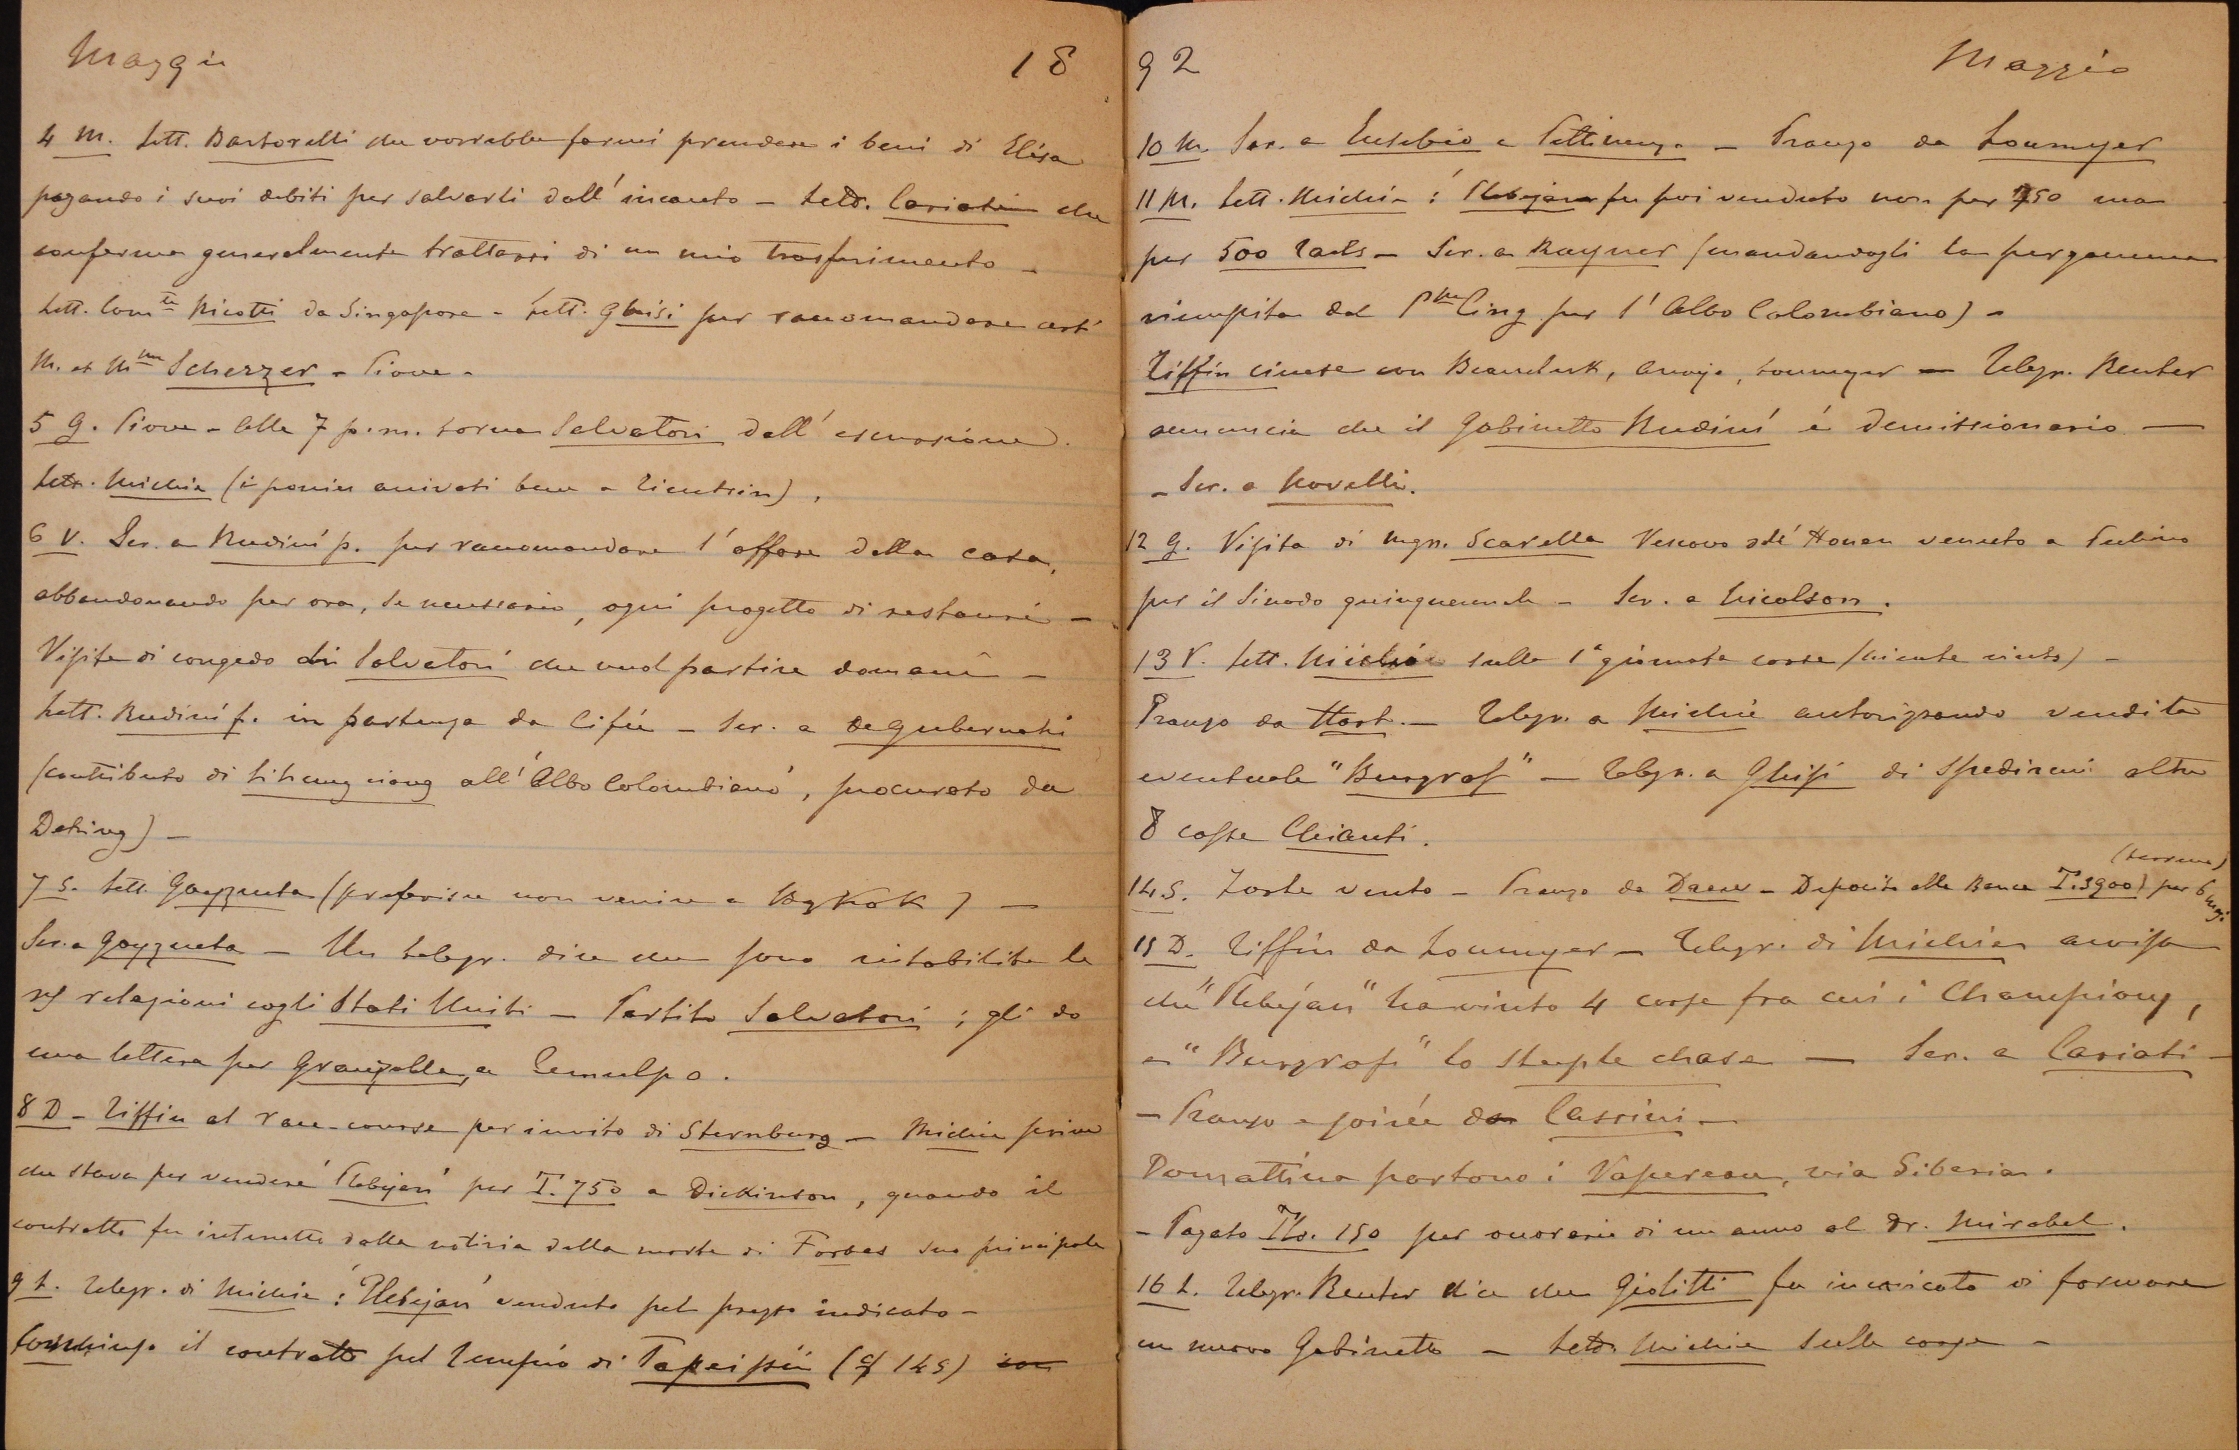 Maggio 18
4 M. Lett. Bartorelli che vorrebbe farmi prendere i beni di Elisa
pagando i suoi debiti per salvarli dall'incanto – Lett. Cariati che
conferma generalmente trattarsi di un mio trasferimento –
Lett. Com.te Nicotti da Singapore – Lett. Ghisi per raccomandare certi
M. et Mme Scherzer – Piove –
5 G. Piove – Alle 7 p.m. torna Salvatori dall'escursione.
Lett. Michie (i ponies arrivati bene a Tientsin).
6 V. Scr. a Rudinì p. per raccomandare l'affare della casa,
abbandonando per ora, se necessario, ogni progetto di restauri –
Visita di congedo di Salvatori che vuol partire domani –
Lett. Rudinì f. in partenza da Cifù – Scr. a De Gubernatis
(contributo di Lihung ciang all'Albo Colombiano, procurato da
Detring) –
7 S. Lett. Goyzueta (preferisce non venire a Bgkok) –
Scr. a Goyzueta – Un telegr. dice che sono ristabilite le
relazioni cogli Stati Uniti – Partito Salvatori; gli do
una lettera per Granzella, a Cemulpo.
8 D – Tiffin al race-course per invito di Sternburg – Michie scrive
che stava per vendere 'Plebejan' per T. 750 a Dickinson, quando il
contratto fu interrotto dalla notizia della morte di Forbes suo principale
9 L. Telegr. di Michie: 'Plebejan' venduto pel prezzo indicato –
Conchiuso il contratto pel tempio di Tapeissù (cf 149)
92 Maggio
10 M Scr. a Eusebio e Pettinengo – Pranzo da Loumyer
11 M. Lett. Michie: Plebejan fu poi venduto non per 750 ma
per 500 Taels – Scr. a Rayner (mandandogli la pergamena
riempita dal Pce Cing per l'Albo Colombiano) –
Tiffin cinese con Beauclerk, Loumyer – Telegr. Reuter
annuncia che il Gabinetto Rudinì è dimissionario –
– Scr. a Novelli.
12 G. Visita di mgr. Scarella Vescovo del Honan venuto a Pechino
per il Sinodo quinquennale – Scr. a Nicolson.
13 V. Lett. Michie sulla 1a giornata corse (niente vinto) –
Pranzo da Hart. – Telegr. a Michie autorizzando vendita
eventuale "Burgraf" – Telegr. a Ghisi di spedirmi altre
8 casse Chianti.
14 S. Forte vento – Pranzo da Drew – Deposito alla Banca T. 3900 (terreno) per 6 mesi
15 D. Tiffin da Loumyer – Telegr. di Michie avvisa
che "Plebejan" ha vinto 4 corse fra cui i Champions,
e "Burgraf" lo steeple chase – Scr. a Cariati –
– Pranzo e soirée da Cassini –
Domattina partono i Vapereau, via Siberia.
– Pagato Tls. 150 per onorario di un anno al Dr. Mirabel.
16 L. Telegr. Reuter dice che Giolitti fu incaricato di formare
un nuovo Gabinetto – Lett. Michie sulle corse –